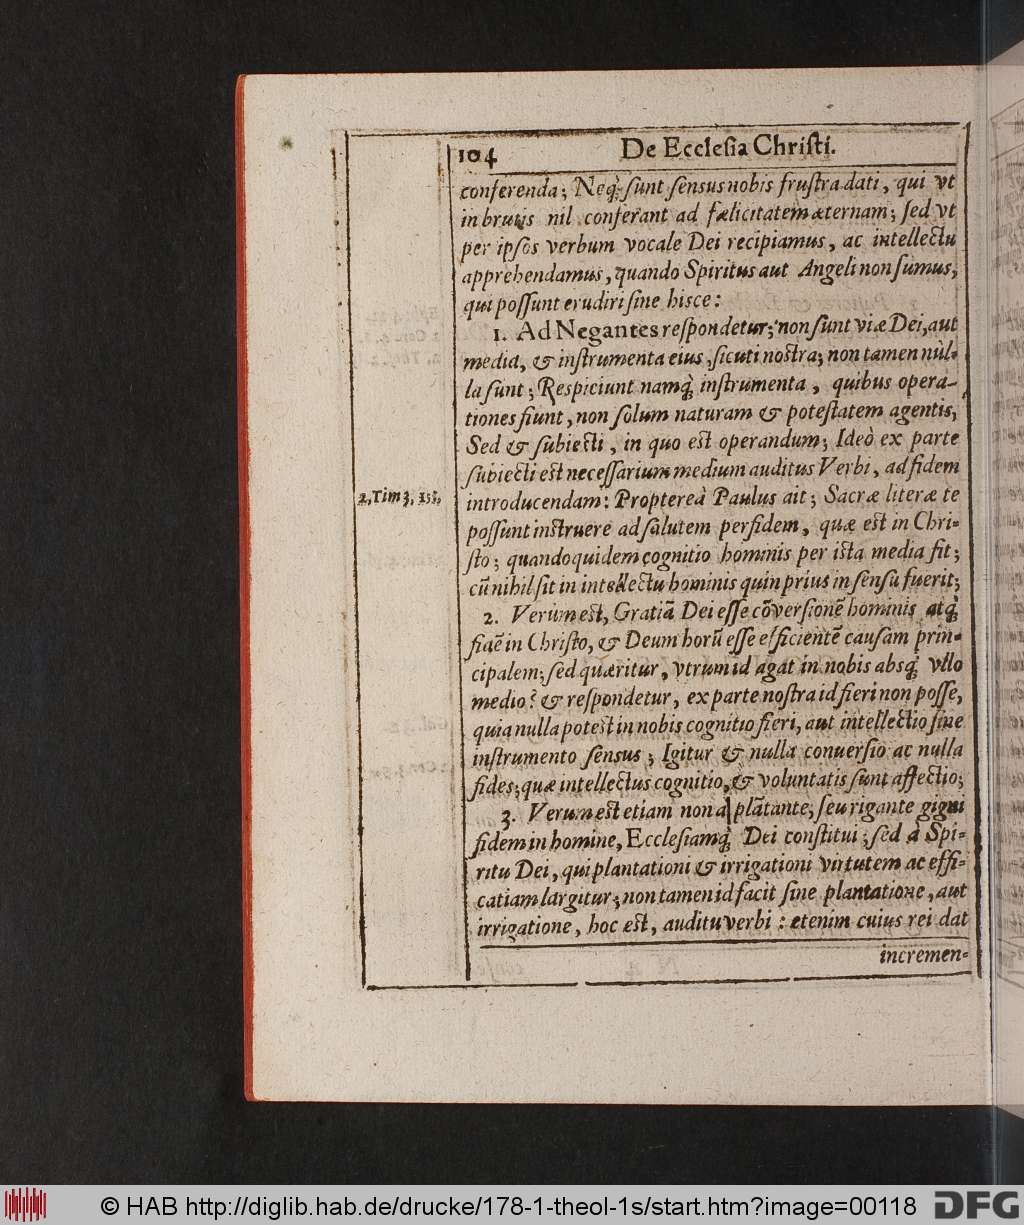 104 De Ecclesia Christi.
conferenda; Neq́; ſunt ſenſus nobis fruſtra dati, qui vt
in brutis nil conferant ad fælicitatem æternam; ſed vt
per ipſos verbum vocale Dei recipiamus, ac intellectu
apprehendamus, quando Spiritus aut Angeli non ſumus,
qui poſſunt erudiri ſine hisce:
1. Ad Negantes reſpondetur; non ſunt viæ Dei, aut
media, & inſtrumenta eius, ſicuti noſtra; non tamen nùl-
la ſunt; Reſpiciunt namq́; inſtrumenta, quibus opera-
tiones fiunt, non ſolum naturam & poteſtatem agentis,
Sed & ſubiecti, in quo eſt operandum; Ideò ex parte
ſubiecti eſt neceſſarium medium auditus Verbi, ad fidem
2, Tim 3, 15,
introducendam: Propterеà Paulus ait; Sacræ literæ te
poſſunt inſtruere ad ſalutem per fidem, quæ eſt in Chri-
ſto; quandoquidem cognitio hominis per iſta media fit;
cũ nihil ſit in intellectu hominis quin prius in ſenſu fuerit;
2. Verùm eſt, Gratiã Dei eſſe cõverſionẽ hominis atq́;
fiaẽ in Chriſto, & Deum horũ eſſe efficientẽ cauſam prin-
cipalem; ſed quæritur, vtrum id agat in nobis absq́; vllo
medio? & reſpondetur, ex parte noſtra id fieri non poſſe,
quia nulla poteſt in nobis cognitio fieri, aut intellectio ſine
inſtrumento ſenſus; Igitur & nulla conuerſio ac nulla
fides; quæ intellectus cognitio, & voluntatis ſunt affectio;
3. Verum eſt etiam non a plãtante, ſeu rigante gigni
fidem in homine, Eccleſiamq́; Dei conſtitui; ſed à Spi-
ritu Dei, qui plantationi & irrigationi virtutem ac effi-
catiam largitur; non tamen id facit ſine plantatione, aut
irrigatione, hoc eſt, auditu verbi: etenim cuius rei dat
incremen-
© HAB http://diglib.hab.de/drucke/178-1-theol-1s/start.htm?image=00118
DFG